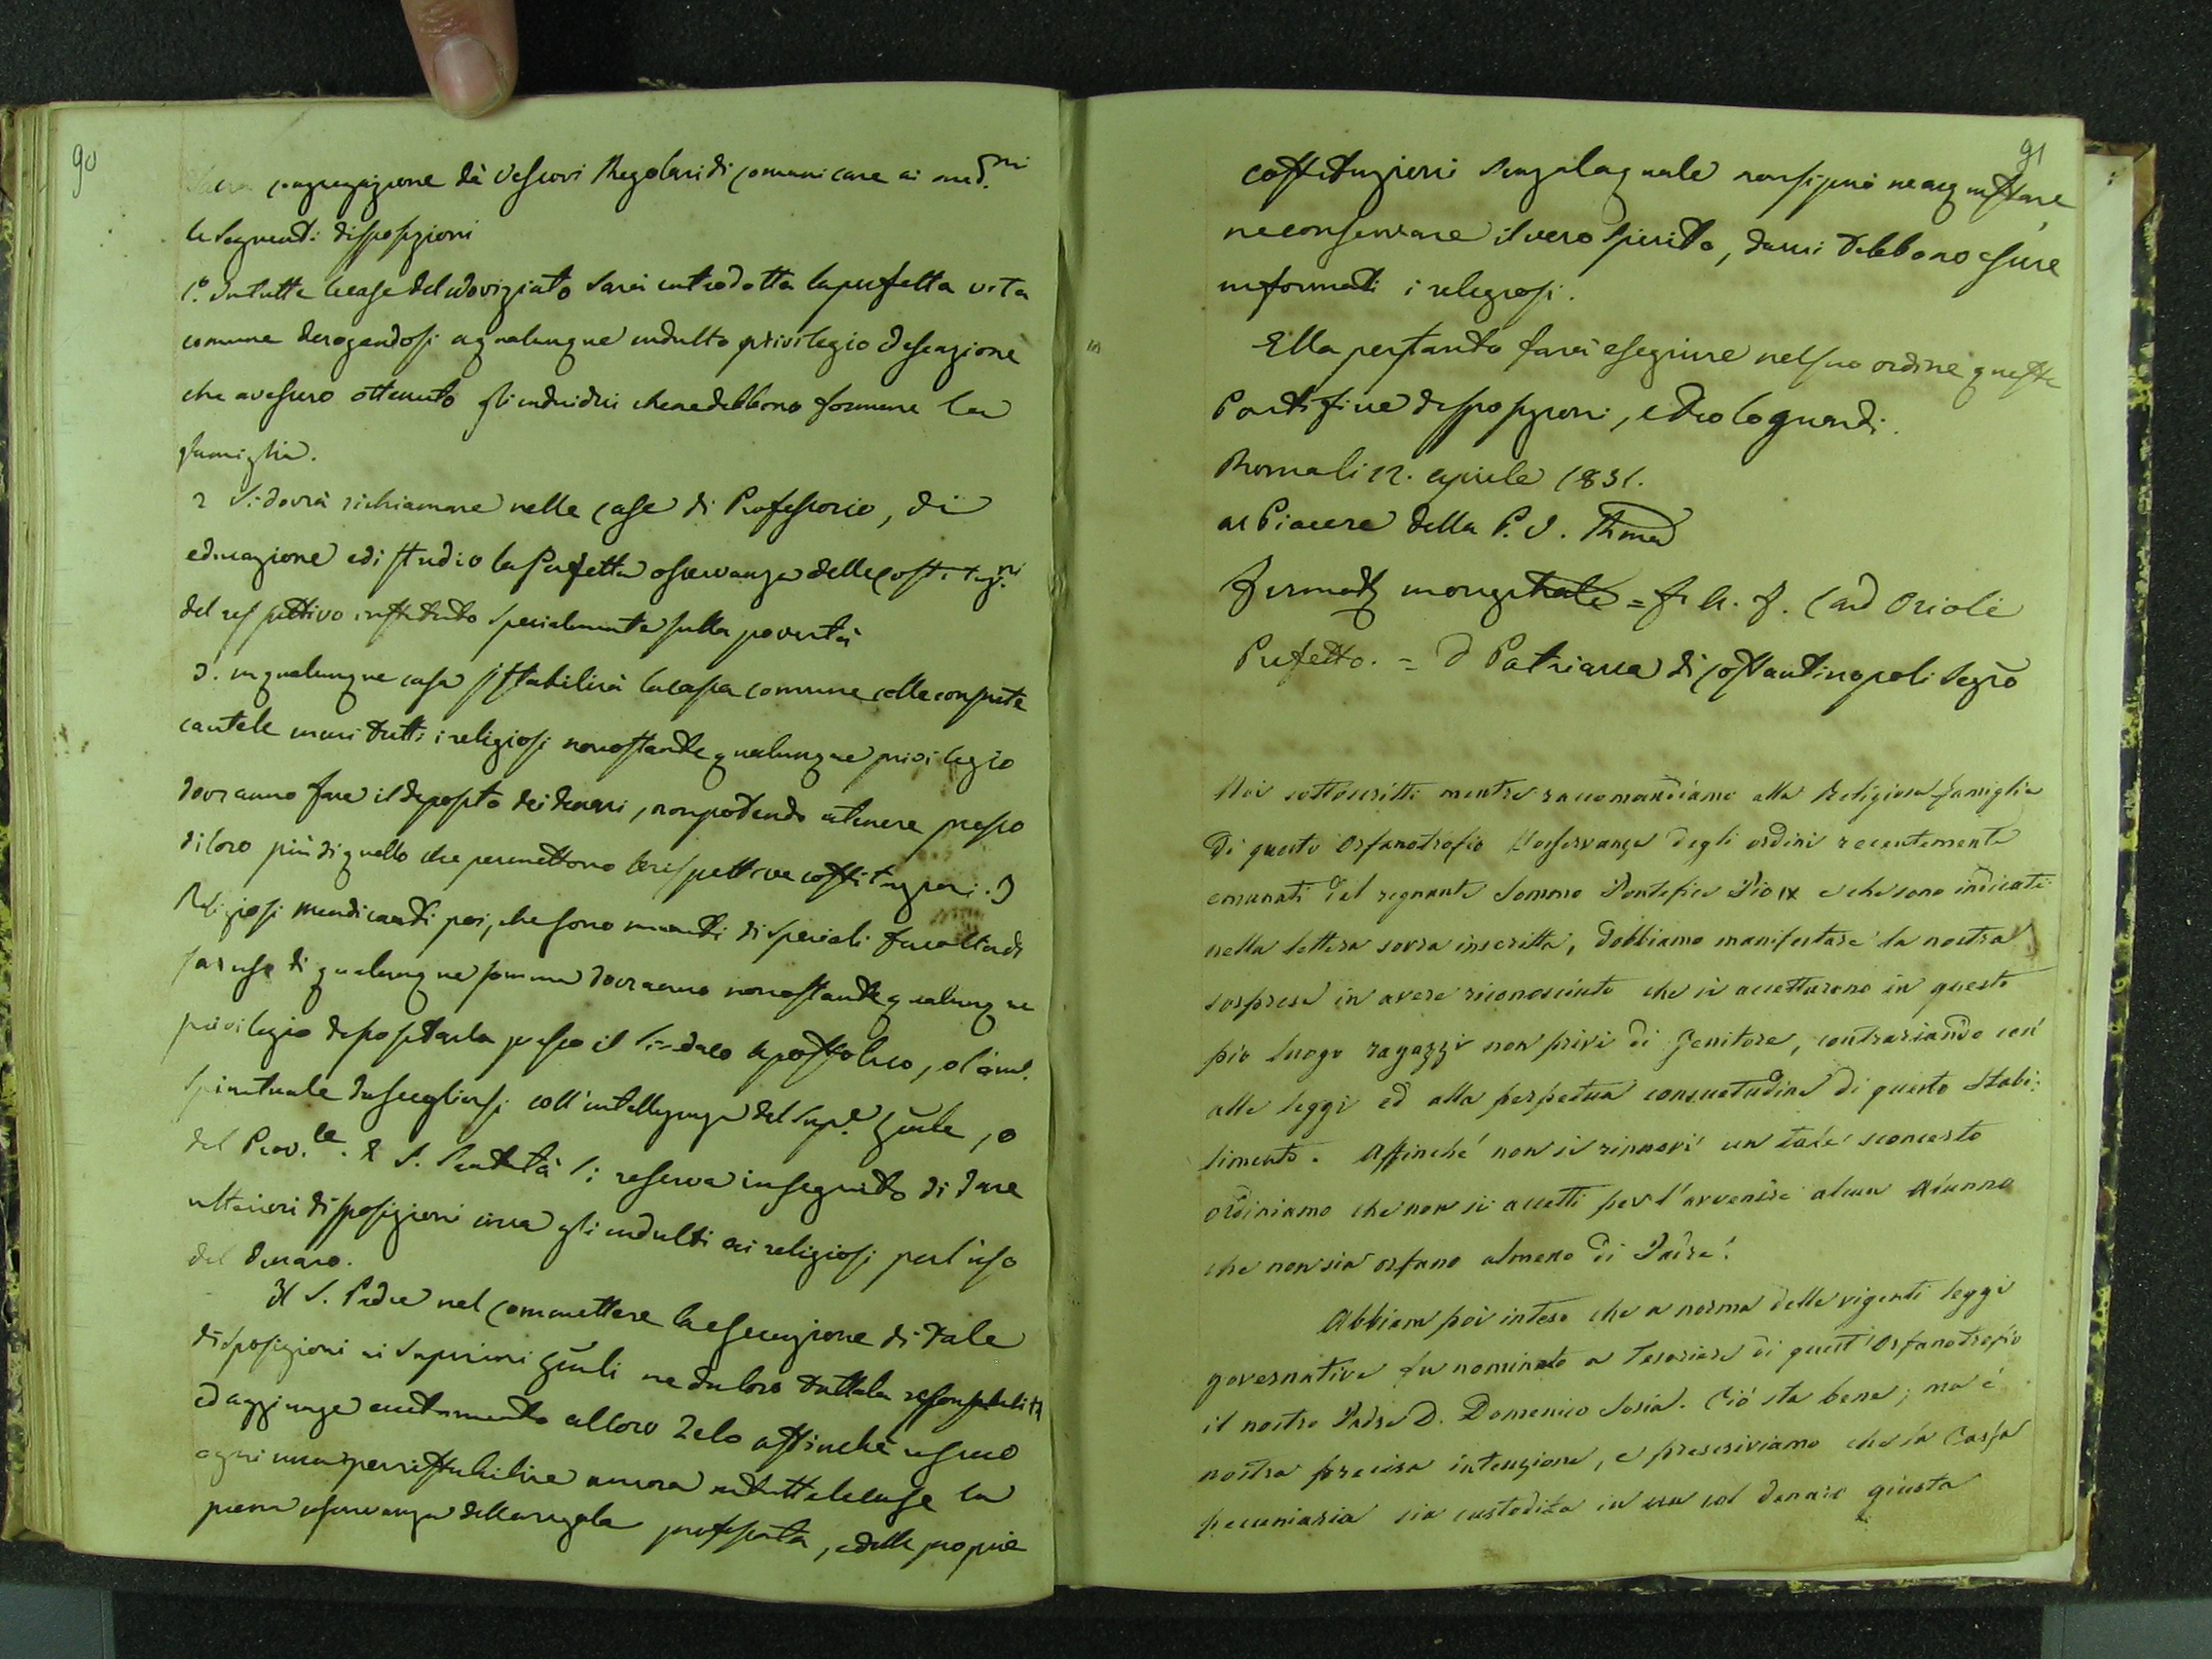 90
Sacra congregazione dè Vescovi Regolari di comunicare ai med.ni
le seguenti disposizioni
1.º In tutte le case del Noviziato sarà introdotta la perfetta vita
comune derogandosi a qualunque indulto privilegio od esenzione
che avessero ottenuto gli individui che ne debbono formare la
famiglia.
2 Si dovrà richiamare nelle case di Professorio, di
educazione e di studio la Perfetta osservanza delle costituz.ni
del respettivo instituto specialmente sulla povertà
3. in qualunque casa si stabilirà la cassa comune colle consuete
cautele in cui tutti i religiosi nonostante qualunque privilegio
dovranno fare il deposito dei denari, non potendo ritenere presso
di loro più di quello che permettono le rispettive costituzioni. I
Religiosi mendicanti poi, che sono muniti di speciali facoltà di
far uso di qualunque somma dovranno nonostante qualunque
privilegio depositarla presso il Sindaco apostolico, o l'am.
spirituale da scegliersi coll'intelligenza del Sup.e Gnle, o
del Prov.le. E S. Santità si reserva in seguito di dare
ulteriori disposizioni circa gli indulti ai religiosi per l'uso
del denaro.
Il S. Padre nel commettere la esecuzione di tale
disposizioni ai Supremi Gnli ne da loro tutta la responsabilità
ed aggiunge eccitamento al loro zelo affinchè
ogni cura per ristabilire ancora in tutte le case la
piena osservanza della regola professata, e delle proprie
91
costituzioni senza la quale non si può ne acquistare,
ne conservare il vero spirito, da cui debbono essere
informati i religiosi.
Ella pertanto farà eseguire nel suo ordine queste
Pontificie disposizioni, e Dio lo guardi.
Roma li 12. aprile 1851.
al Piacere della P. V. Rma
Firmato = f. A. F. Card Orioli
Prefetto. = D Patriarca di Costantinopoli Segrio
Noi sottoscritti mentre raccomandiamo alla Religiosa famiglia
Di questo Orfanotrofio l'osservanza degli ordini recentemente
emanati dal regnante Sommo Pontefice Pio IX e che sono indicati
nella lettera sovra inscritta, dobbiamo manifestare la nostra
sorpresa in avere riconosciuto che si accettarono in questo
pio luogo ragazzi non privi di Genitore, contrariando così
alle leggi ed alla perpetua consuetudine di questo Stabi:
limento. Affinché non si rinnovi un tale sconcerto
ordiniamo che non si accetti per l'avvenire alcun Alunno
che non sia orfano almeno di Padre.
Abbiam poi inteso che a norma delle vigenti leggi
governative fu nominato a Tesoriere di quest'Orfanotrofio
il nostro Padre D. Domenico Soria. Ciò sta bene; ma è
nostra precisa intenzione, e prescriviamo che la Cassa
pecuniaria sia custodita in una col denaro giusta